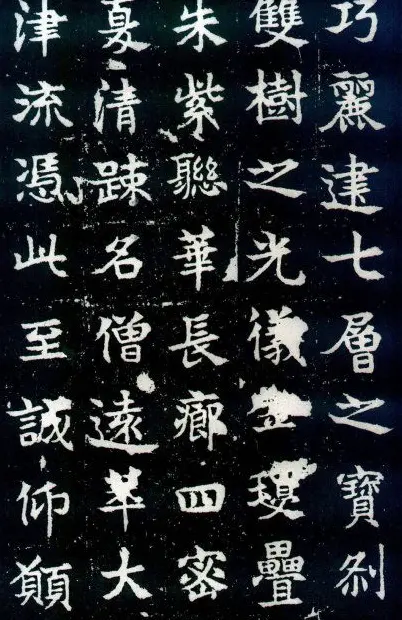 巧麗建七層之寶剎
雙樹之光儀金璎疊
朱紫聯華長廊四密
夏清疎名僧遠萃大
津流憑此至誠仰願